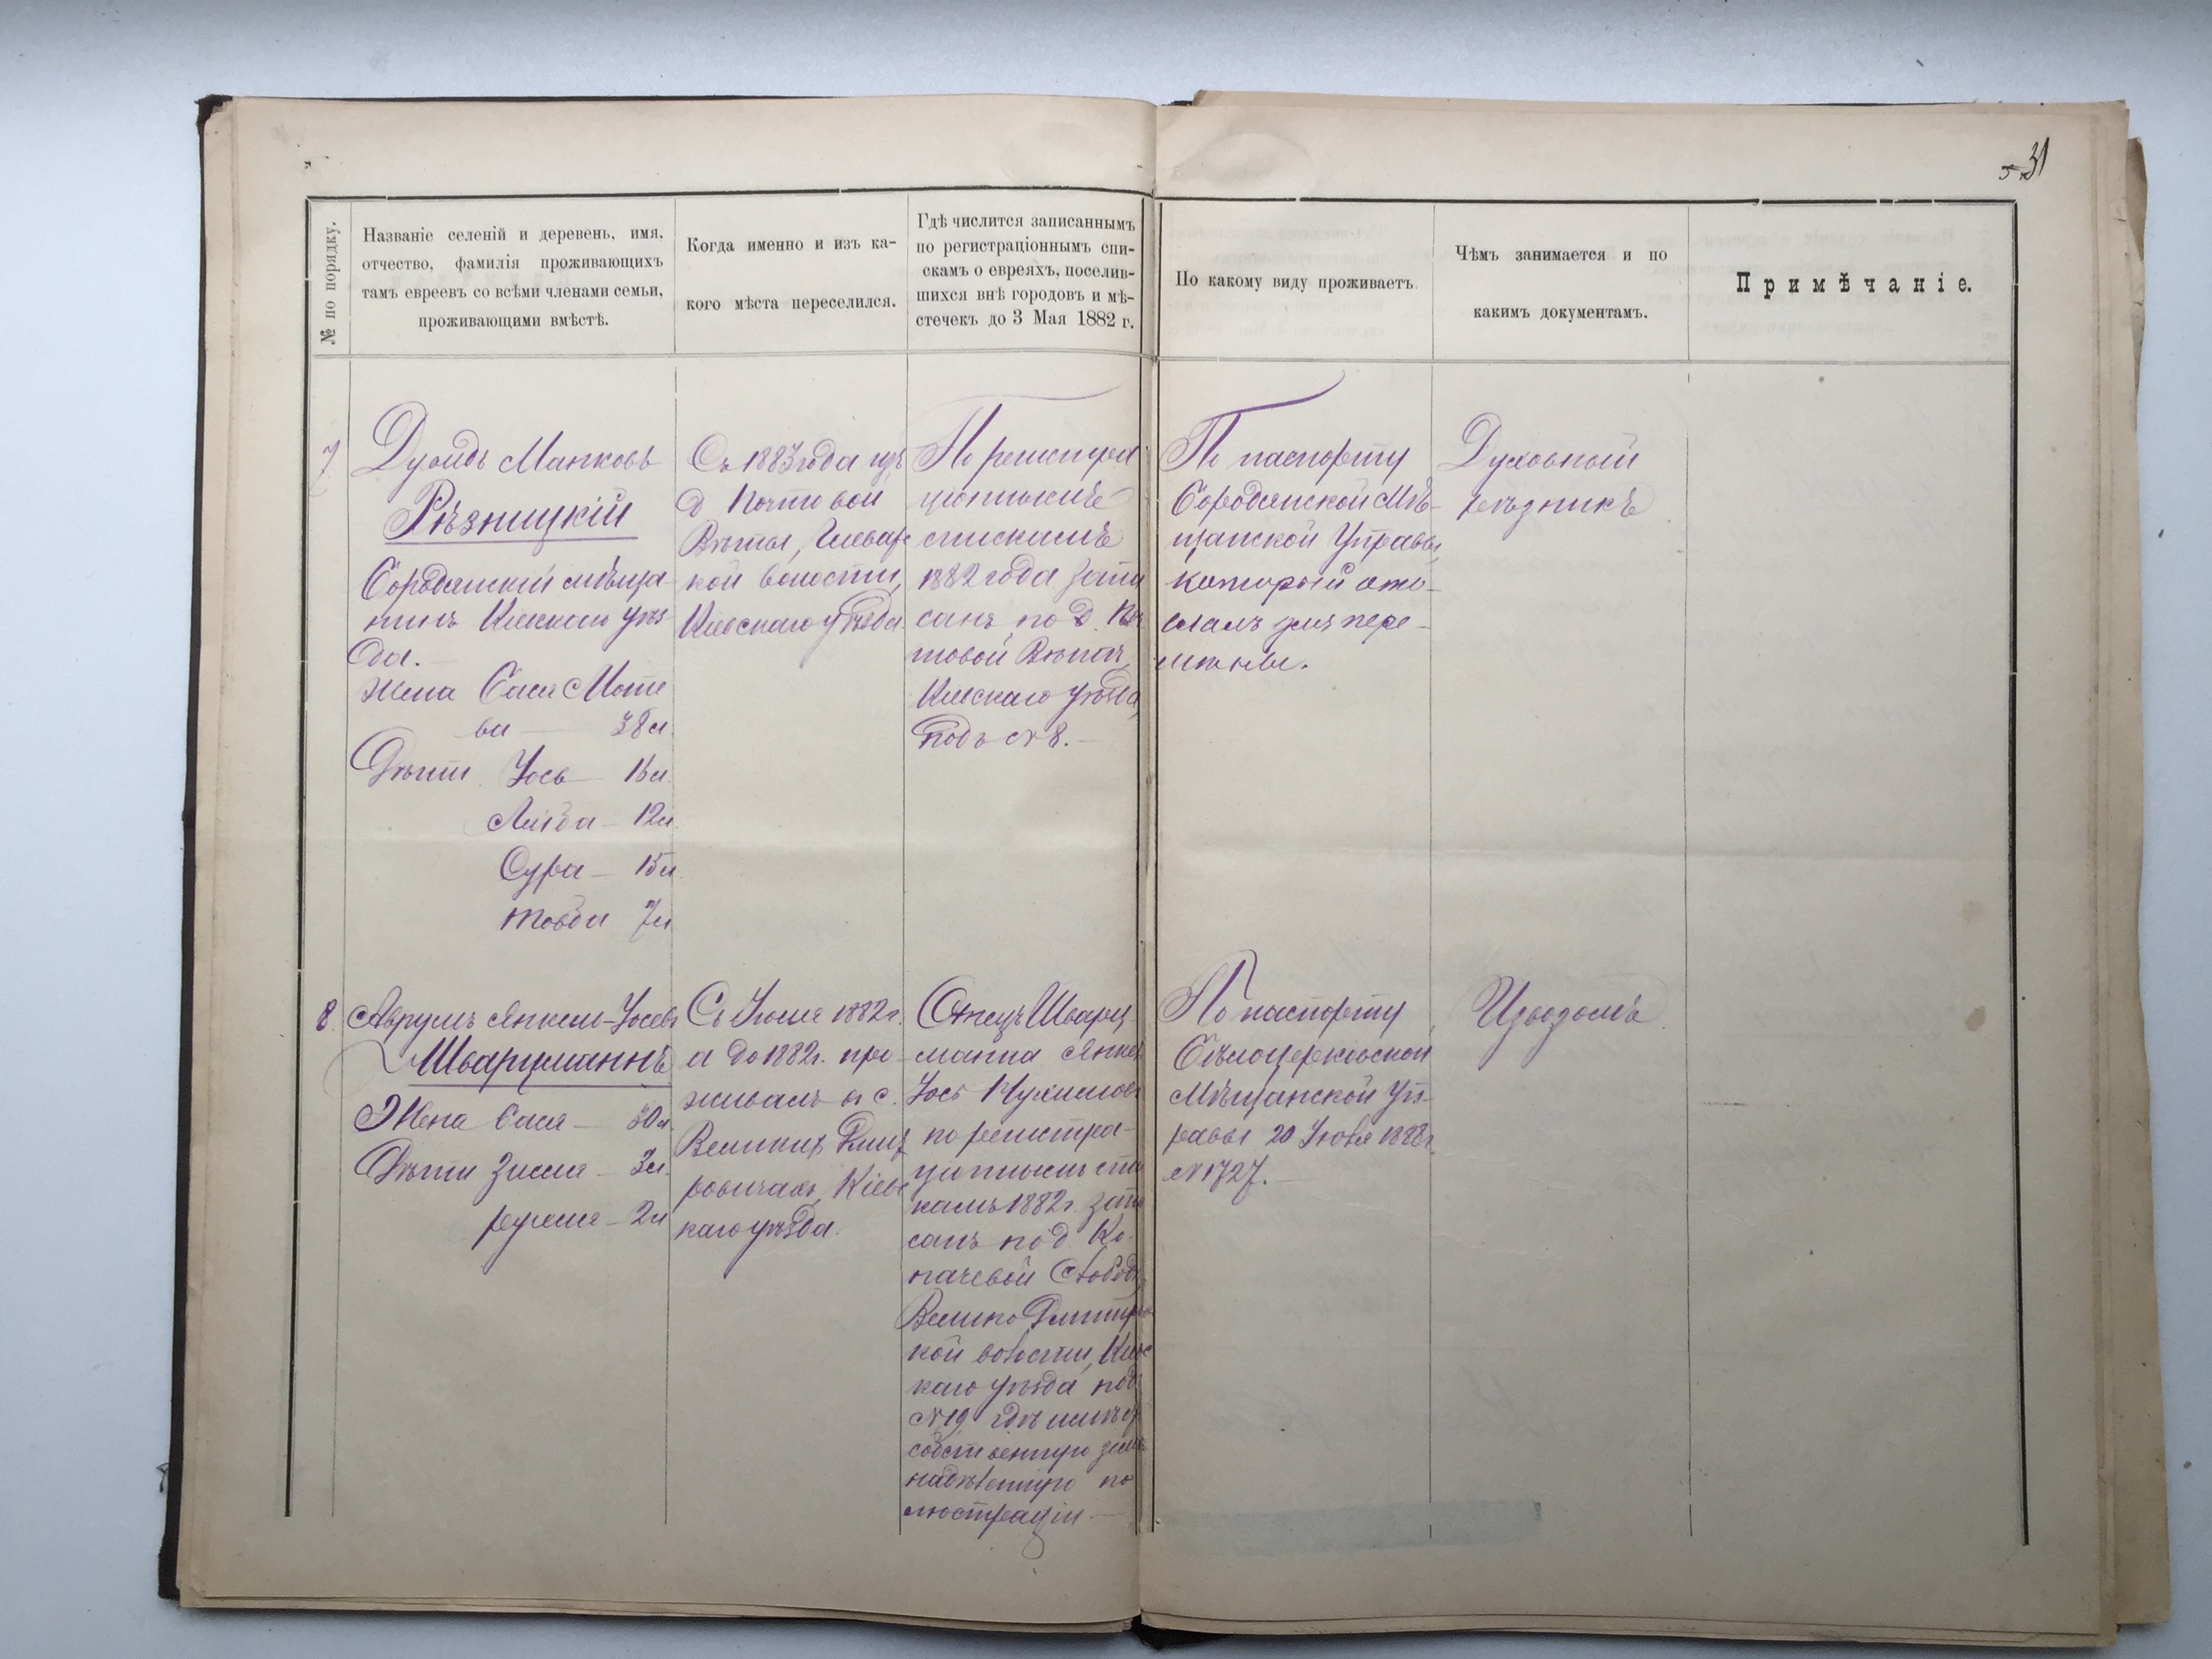 31
№ по порядку.
Названіе селеній и деревень, имя,
отчество, фамилія проживающихъ
тамъ евреевъ со всѣми членами семьи,
проживающими вмѣстѣ.
Когда именно и изъ ка-
кого мѣста переселился.
Гдѣ числится записаннымъ
по регистраціоннымъ спи-
скамъ о евреяхъ, поселив-
шихся внѣ городовъ и мѣ-
стечекъ до 3 Мая 1882 г.
По какому виду проживаетъ.
Чѣмъ занимается и по
какимъ документамъ.
Примѣчаніе.
7
Дувидъ Манковъ
Рѣзницкій
мѣща
нинъ Кіевскаго уѣз
да.
Жена Сася Моте
ва — 38 л.
Дѣти Іось —
Лейба — 12 л.
Сура — 15 л.
Товба 7 л.
Съ 1883 года изъ
д. Почтовой
Виты, Гвоар
кой волости,
Кіевскаго уѣзда.
По регистра
ціоннымъ
спискамъ
1882 года запи
санъ по д. Поч
товой Витѣ,
Кіевскаго уѣзда,
подъ № 8. —
По паспорту
Мѣ-
щанской Управы,
который ото-
сланъ для пере-
мѣны.
Духовный
рѣзникъ
8.
Аврумъ Янкель-Іосевъ
Шварцманнъ
Жена Сися — 30 л.
Дѣти Зисля — 3 л.
Рухля — 2 л.
Съ 1882 г.
а до 1882 г. про-
живалъ въ с.
Великих Дмит
ровичахъ, Кіевс
каго уѣзда.
Отецъ Шварц
манна Янкель
Іось Нухимовъ
по регистра-
ціоннымъ спи
камъ 1882 г. запи
санъ по д. Ко-
пачевой Слободѣ,
Велико Дмитров
кой волости, Кіевс
каго уѣзда подъ
№ 19, гдѣ имѣетъ
собственную землю
надѣленную по
люстраціи. —
По паспорту
Бѣлоцерковской
Мѣщанской Уп-
равы 20 1888 г.
№ 1727. —
Извозомъ